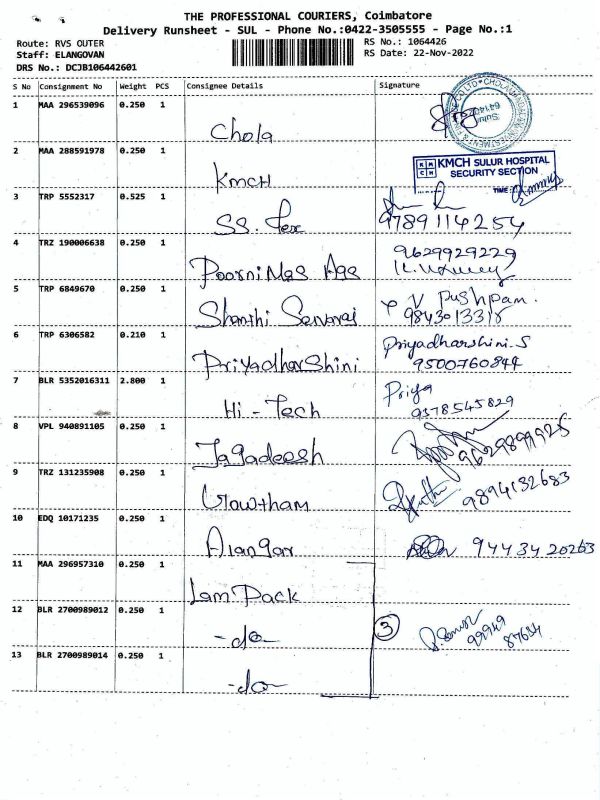 THE PROFESSIONAL COURIERS, Coimbatore
Delivery Runsheet - SUL - Phone No.:0422-3505555 - Page No.:1
Route: RVS OUTER
Staff: ELANGOVAN
DRS No.: DCJB106442601
RS No.: 1064426
RS Date: 22-Nov-2022
S No Consignment No Weight PCS Consignee Details Signature
1 MAA 296539096 0.250 1 Chola
2 MAA 288591978 0.250 1 KMCH
KMCH SULUR HOSPITAL
SECURITY SECTION
TIME:
3 TRP 5552317 0.525 1 SS. Tex 9789114254
4 TRZ 190006638 0.250 1 Poornimas Ags 9629929229
5 TRP 6849670 0.250 1 Shanthi V Pushpam.
9843013315
6 TRP 6306582 0.210 1 Priyadharshini Priyadharshini.S
9500760844
7 BLR 5352016311 2.800 1 Hi - Tech Priya
9378545829
8 VPL 940891105 0.250 1 Jagadeesh 9629899925
9 TRZ 131235908 0.250 1 Gowtham 9894132683
10 EDQ 10171235 0.250 1 Alangar 9443420263
11 MAA 296957310 0.250 1 Lam Pack
12 BLR 2700989012 0.250 1 -do- 3 99949
87634
13 BLR 2700989014 0.250 1 -do-